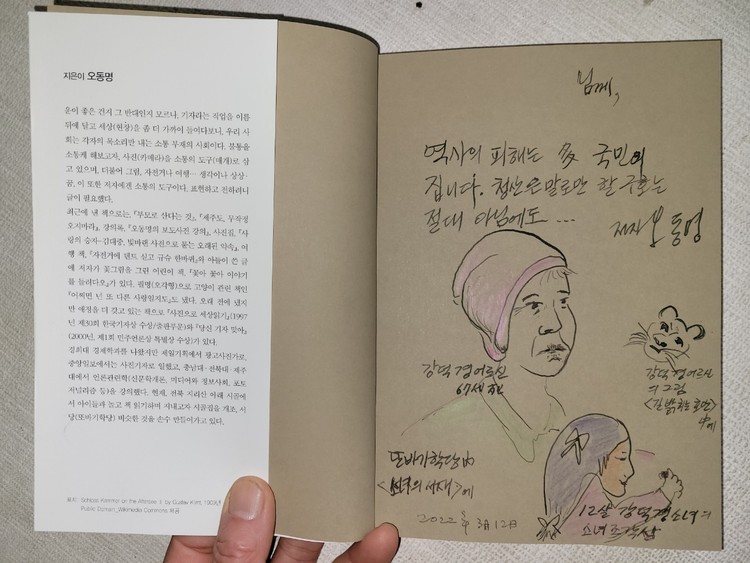 지은이 오동명
운이 좋은 건지 그 반대인지 모르나, 기자라는 직업을 이름
뒤에 달고 세상(현상)을 좀 더 가까이 들여다보니, 우리 사
회는 각자의 목소리만 내는 소통 부재의 사회이다. 불통을
소통케 해보고자, 사진(카메라)을 소통의 도구(매개)로 삼
고 있으며, 더불어 그림, 자전거나 여행… 생각이나 상상·
꿈, 이 또한 저자에겐 소통의 도구이다. 표현하고 전하려니
글이 필요했다.
최근에 낸 책으로는, 『부모로 산다는 것』, 『제주도, 무작정
오지마라』, 강의록, 『오동명의 보도사진 강의』, 사진집, 『사
랑의 승자-김대중, 빛바랜 사진으로 묻는 오래된 약속』, 여
행 책, 『자전거에 텐트 싣고 규슈 한바퀴』와 아들이 쓴 글
에 저자가 꽃그림을 그린 어린이 책, 『꽃아 꽃아 이야기
를 들려다오』가 있다. 필명(오각형)으로 고양이 관련 책인
『어쩌면 넌 또 다른 사람일지도』도 냈다. 오래 전에 냈지
만 애정을 더 갖고 있는 책으로 『사진으로 세상읽기』(1997
년 제30회 한국기자상 수상/출판부문)와 『당신 기자 맞아』
(2000년, 제1회 민주언론상 특별상 수상)가 있다.
경희대 경제학과를 나왔지만 제일기획에서 광고사진기로,
중앙일보에서는 사진기자로 일했고, 충남대·전북대·제주
대에서 언론관련학(신문학개론, 미디어와 정보사회, 포토
저널리즘 등)을 강의했다. 현재, 전북 지리산 아래 시골에
서 아이들과 놀고 책 읽기하며 자내고자 시골집을 개조, 서
당(또바기학당) 비슷한 것을 손수 만들어가고 있다.
by Gustav Klimt,
Public Domain, Wikimedia Commons 제공
님께,
역사의 피해는 多 국민이
집니다. 청산은 말로만 할 구호는
절대 아님에도 ...
저자 오동명
강덕경어르신
67세 한
강덕경어르신
의 그림
中에
또바기학당 內
의 서재>에
12살 강덕경소녀의
소녀
2022년 3월 12일